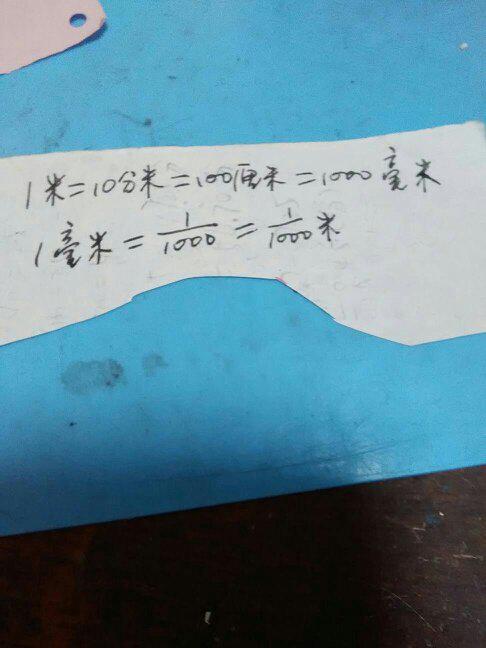 1米=10分米=100厘米=1000毫米
1毫米=1/1000=1/1000米